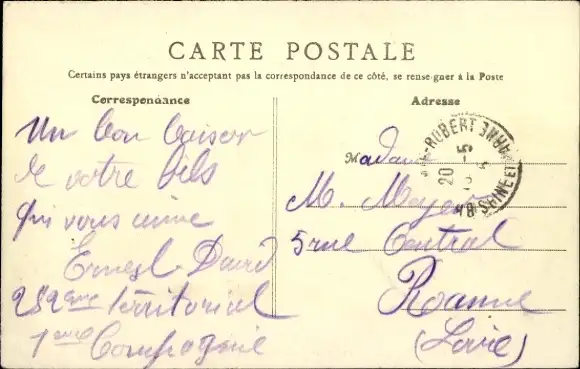 CARTE POSTALE
Certains pays étrangers n'acceptant pas la correspondance de ce côté, se renseigner à la Poste
Correspondance
Adresse
Un bon baiser
de votre fils
qui vous aime
Ernest David
282ème territorial
1ère Compagnie
Madame
M. Mayer
5 rue Central
Roanne
(Loire)
ROBERT
20 -5
SEINE ET MARNE